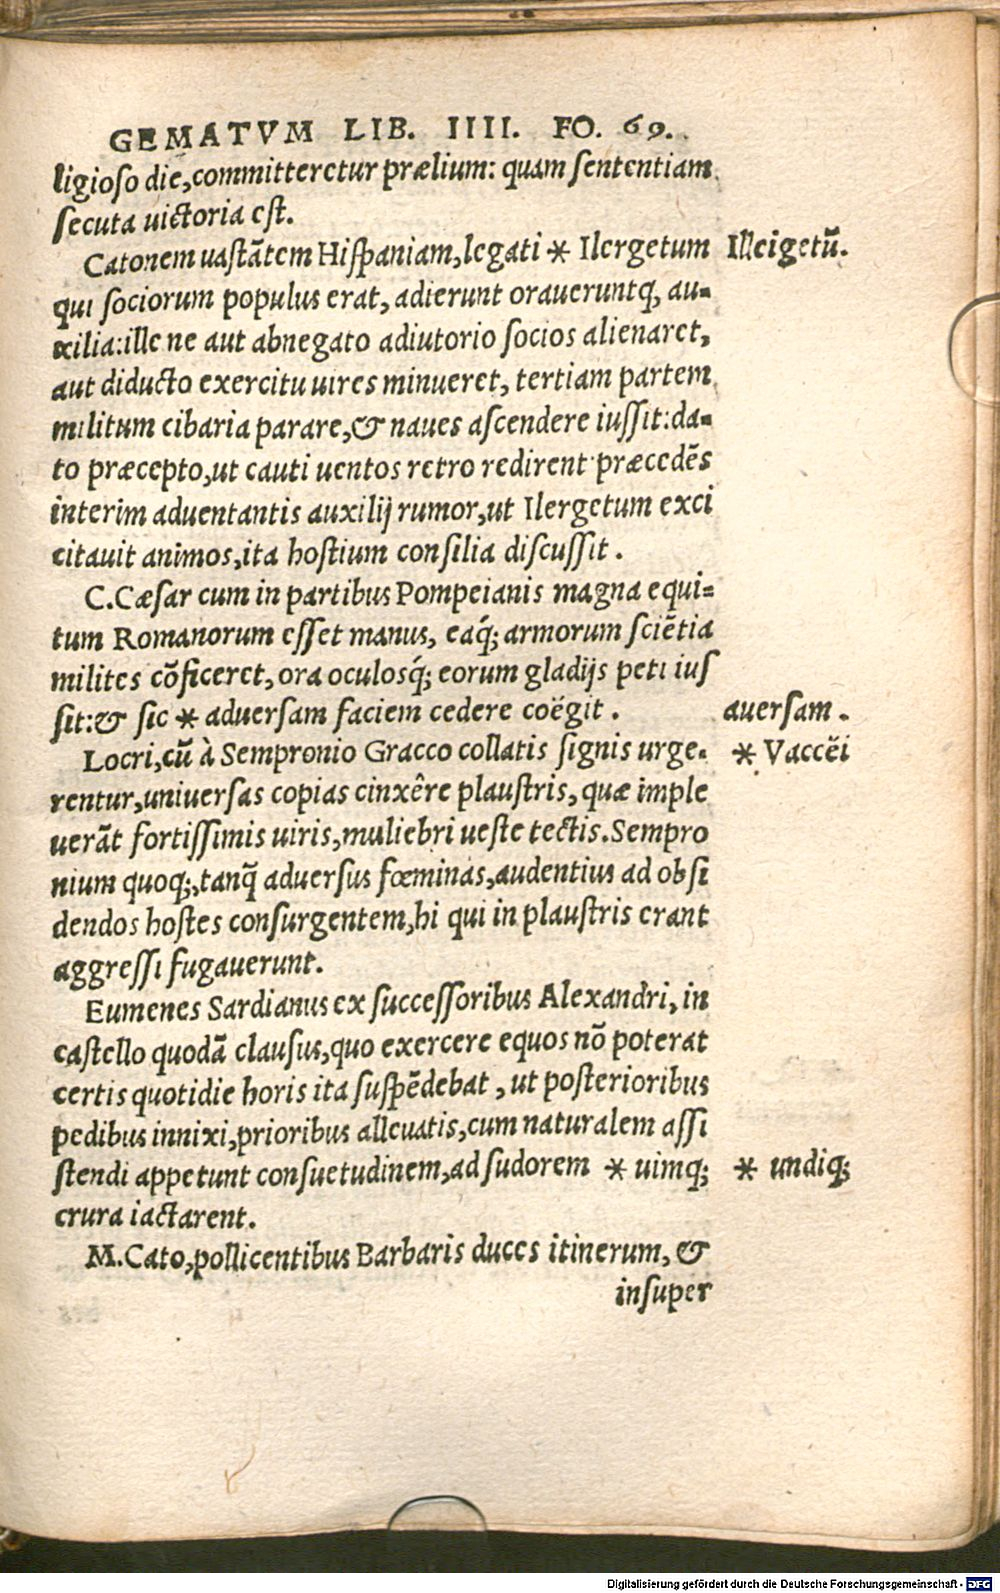 GEMATVM LIB. IIII. FO. 69.
ligioso die, committeretur prælium: quam sententiam
secuta uictoria est.
Catonem uastātem Hispaniam, legati * Ilergetum
Illeigetū.
qui sociorum populus erat, adierunt oraueruntq́, au-
xilia: ille ne aut abnegato adiutorio socios alienaret,
aut diducto exercitu uires minueret, tertiam partem
militum cibaria parare, & naues ascendere iussit: da-
to præcepto, ut cauti uentos retro redirent præcedēs
interim aduentantis auxilij rumor, ut Ilergetum exci
citauit animos, ita hostium consilia discussit.
C. Cæsar cum in partibus Pompeianis magna equi-
tum Romanorum esset manus, eaq́; armorum sciētia
milites cōficeret, ora oculosq́; eorum gladijs peti ius
sit: & sic * aduersam faciem cedere coëgit.
auersam.
Locri, cū à Sempronio Gracco collatis signis urge.
* Vaccēi
rentur, uniuersas copias cinxêre plaustris, quæ imple
uerāt fortissimis uiris, muliebri ueste tectis. Sempro
nium quoq;, tanq̄ aduersus fœminas, audentius ad obsi
dendos hostes consurgentem, hi qui in plaustris erant
aggressi fugauerunt.
Eumenes Sardianus ex successoribus Alexandri, in
castello quodā clausus, quo exercere equos nō poterat
certis quotidie horis ita suspēdebat, ut posterioribus
pedibus innixi, prioribus alleuatis, cum naturalem assi
stendi appetunt consuetudinem, ad sudorem * uimq;
* undiq;
crura iactarent.
M. Cato, pollicentibus Barbaris duces itinerum, &
insuper
Digitalisierung gefördert durch die Deutsche Forschungsgemeinschaft - DFG